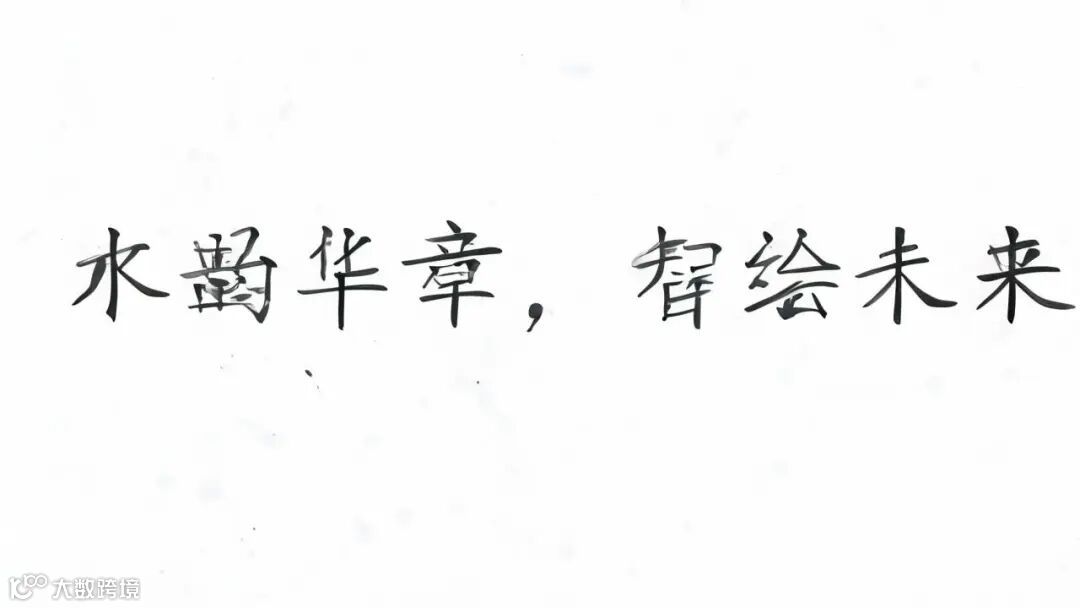 水华章，智绘未来
大数跨境